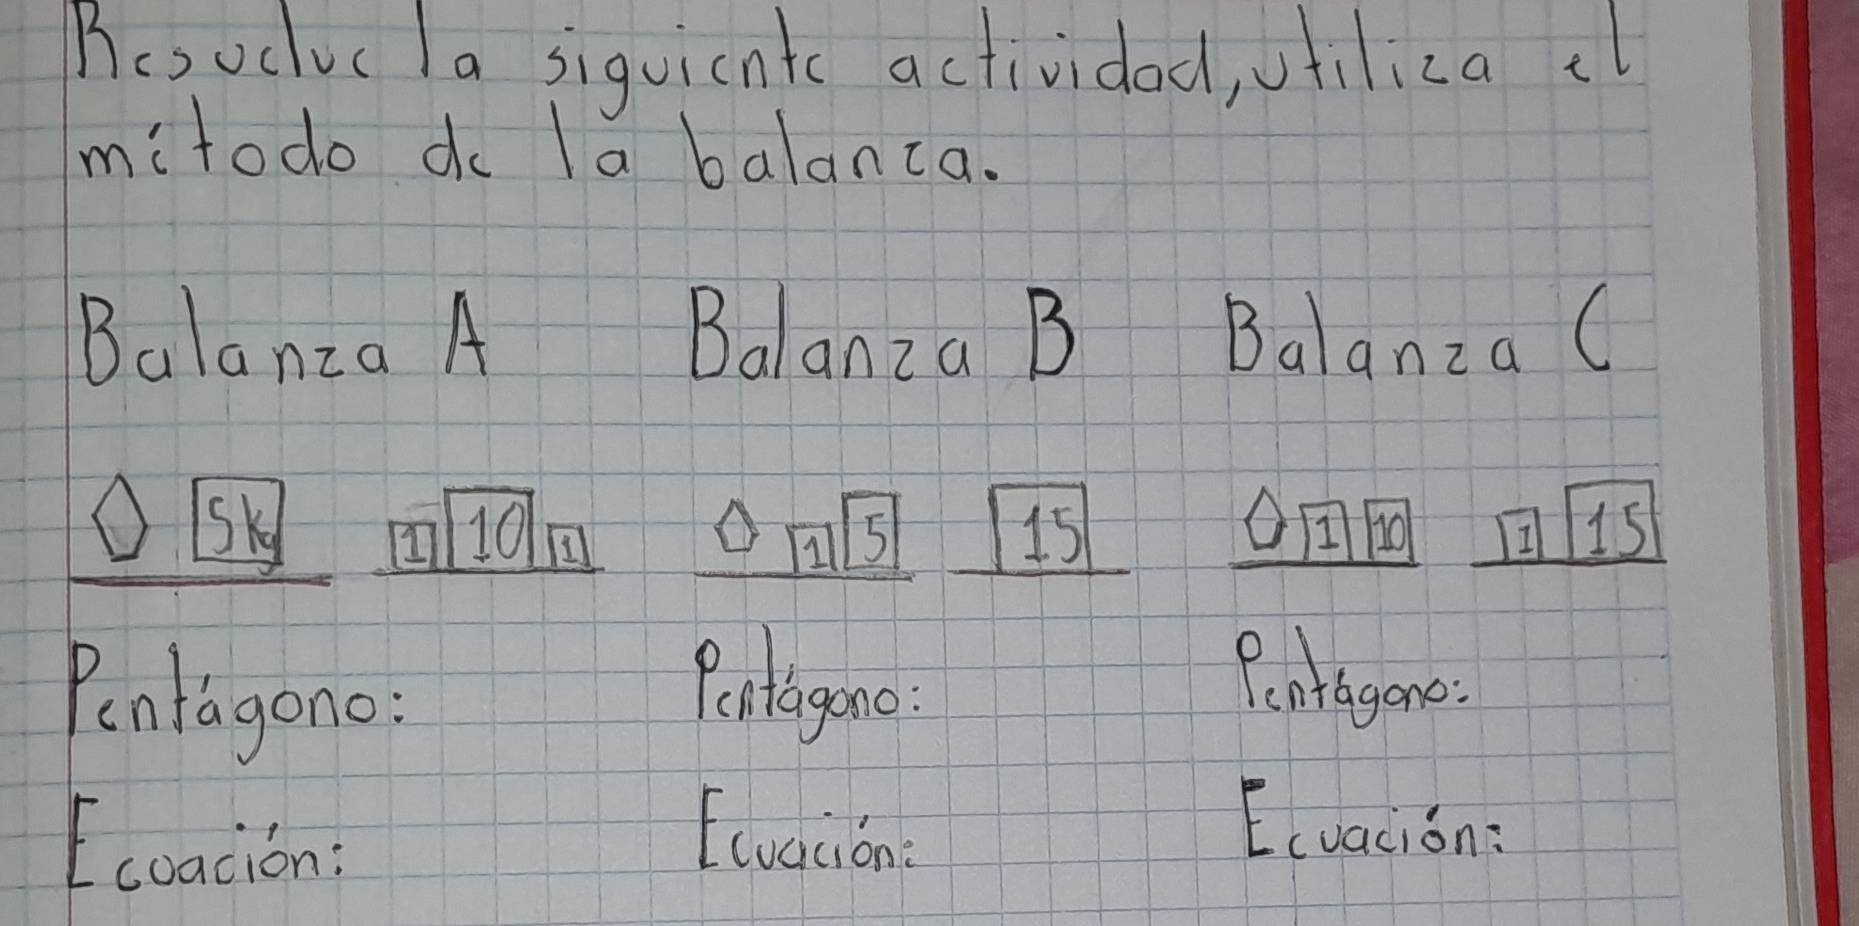 Resuelve la siguiente actividad, utiliza el
método de la balanza.
Balanza A Balanza B Balanza C
5kg 1 10 1 1 5 15 1 10 1 15
Pentágono: Pentágono: Pentágono:
Ecoación: Ecuación: Ecuación: